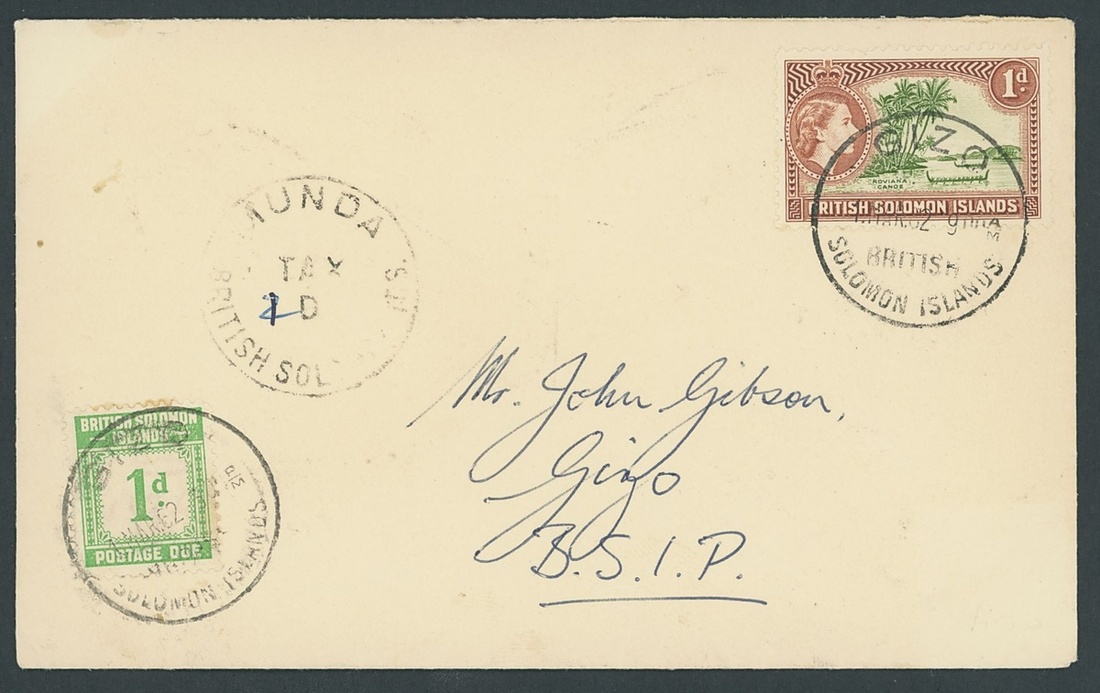 1d.
ROVIANA
CANOE
BRITISH SOLOMON ISLANDS
GIZO
MAR 62 9 AM
BRITISH
SOLOMON ISLANDS
MUNDA
TAX
D
BRITISH SOL
Mr. John Gibson,
Gizo
B.S.I.P.
BRITISH SOLOMON
ISLANDS
1d.
POSTAGE DUE
GIZO
MAR 62
SOLOMON ISLANDS